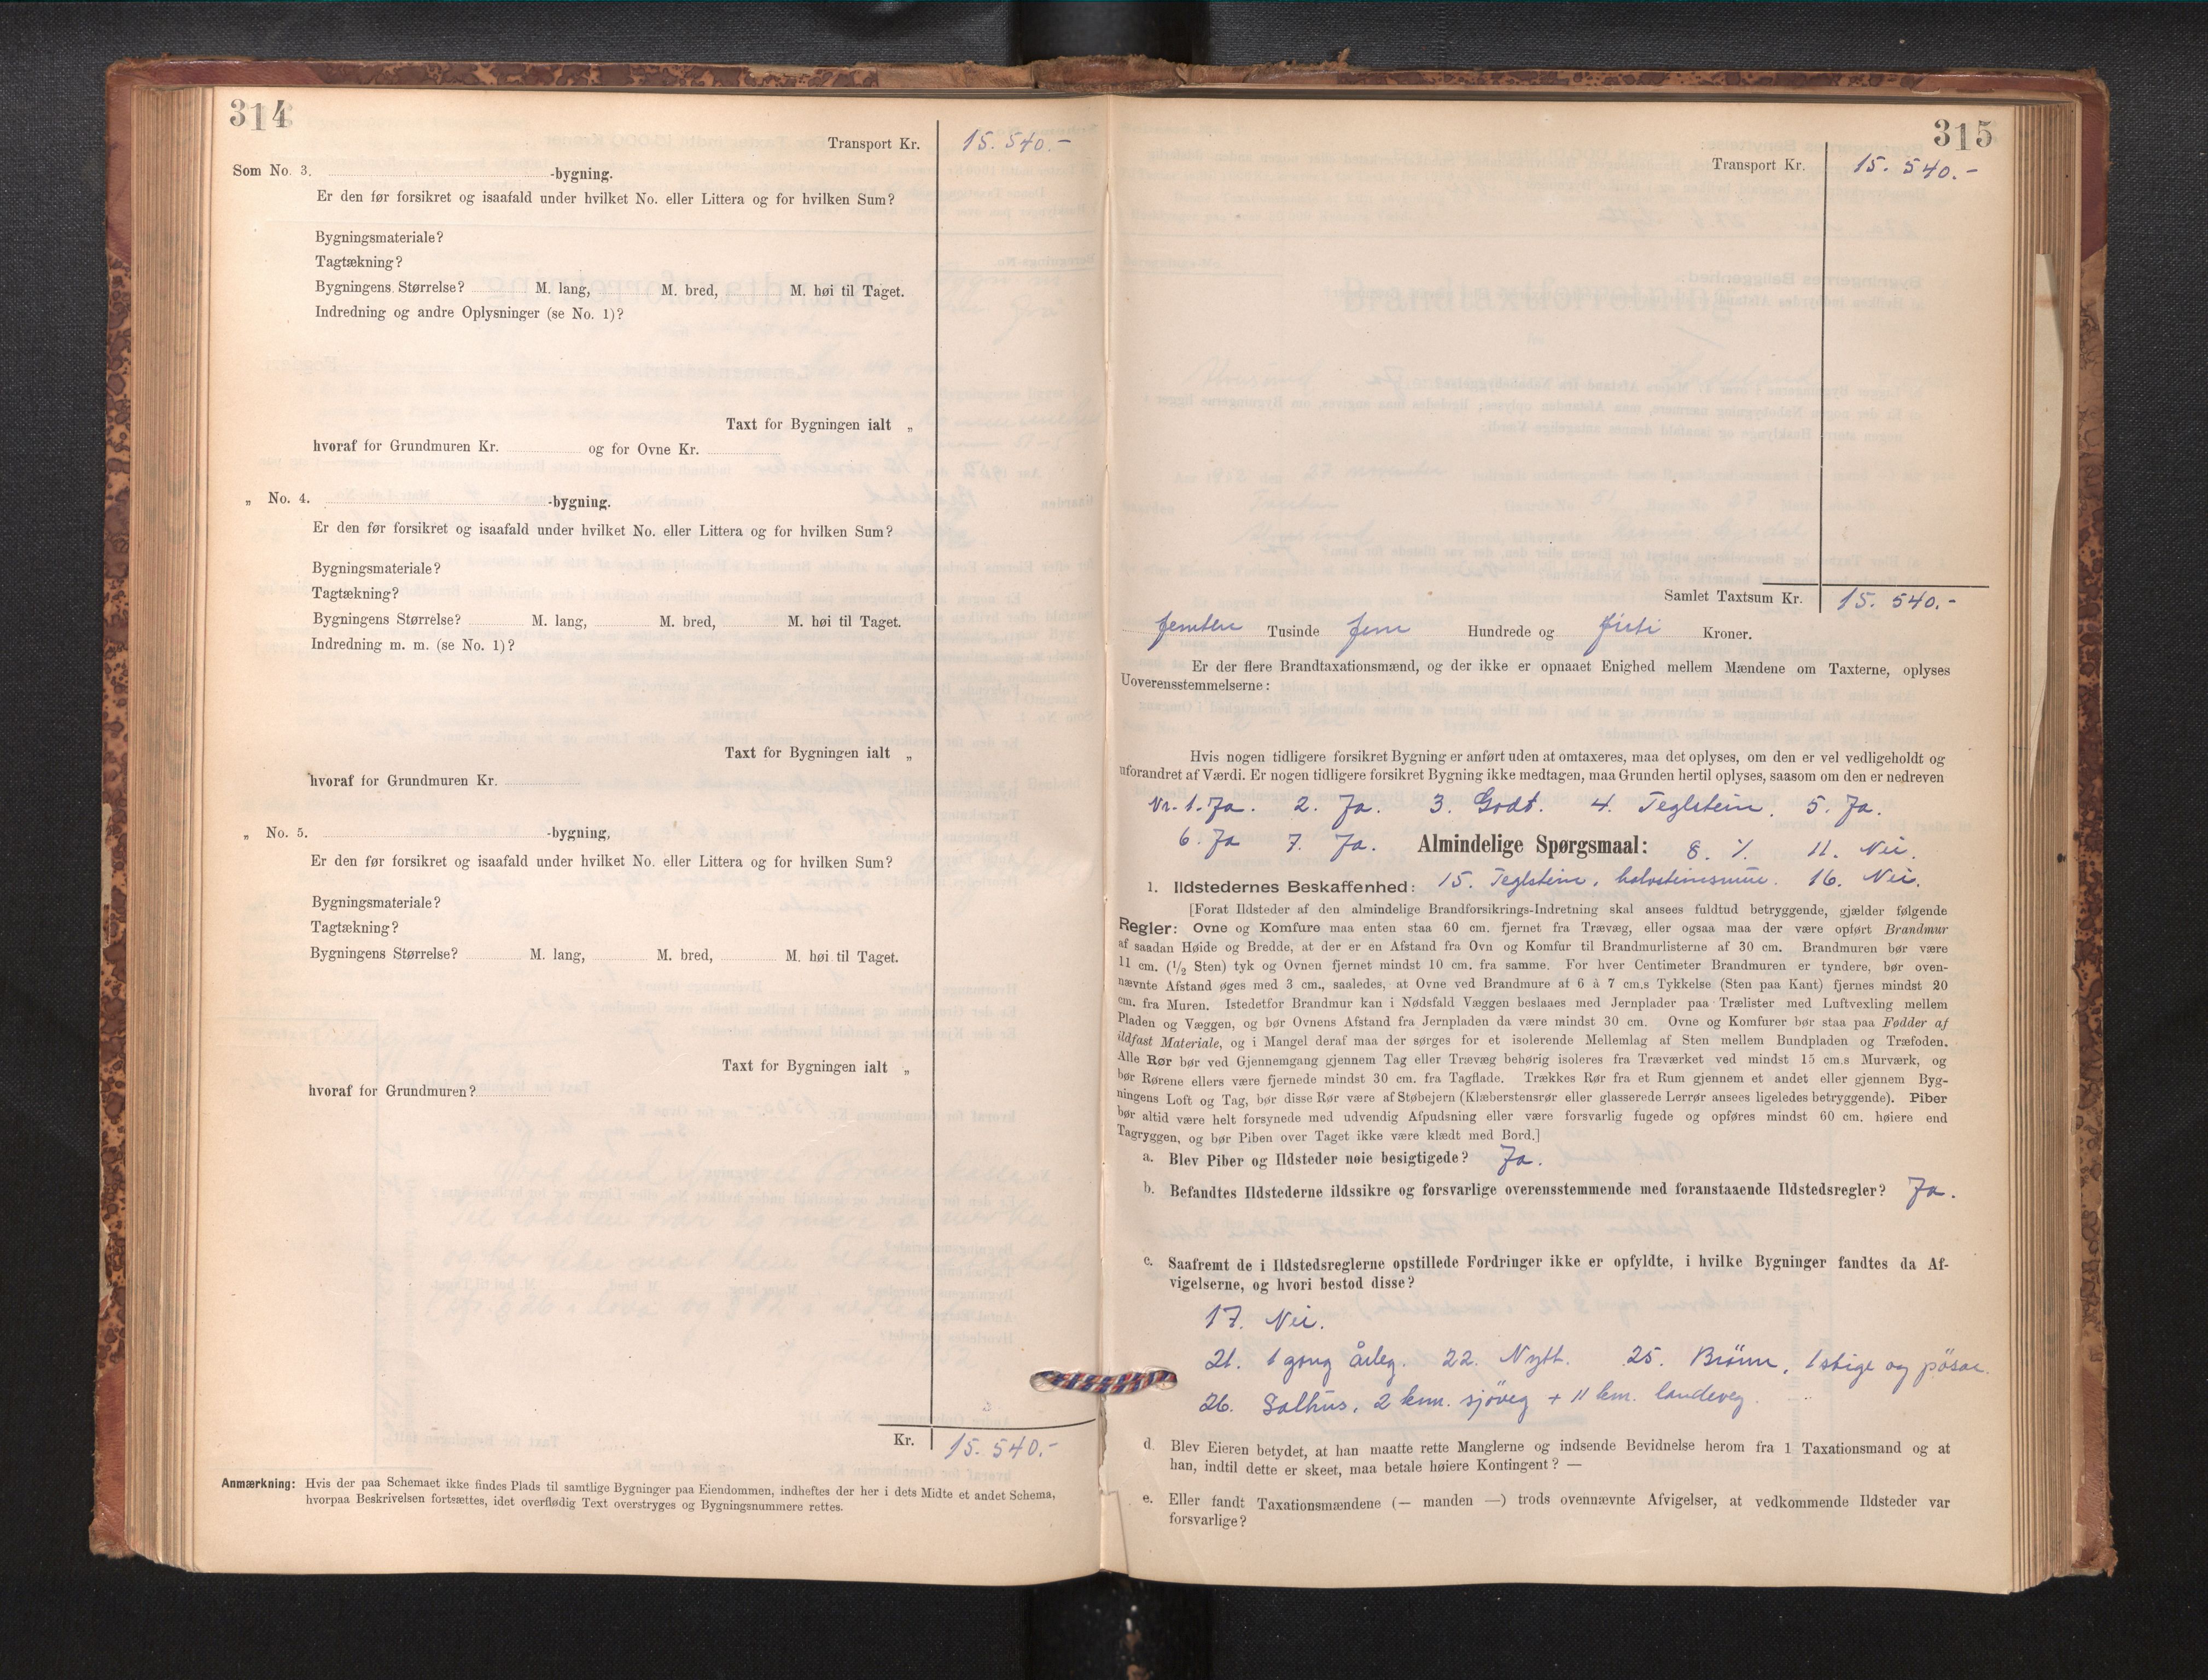 314
Transport Kr. 15.540.-
Som No. 3. -bygning.
Er den før forsikret og isaafald under hvilket No. eller Littera og for hvilken Sum?
Bygningsmateriale?
Tagtækning?
Bygningens Størrelse? M. lang, M. bred, M. høi til Taget.
Indredning og andre Oplysninger (se No. 1)?
Taxt for Bygningen ialt „
hvoraf for Grundmuren Kr. og for Ovne Kr.
„ No. 4. -bygning.
Er den før forsikret og isaafald under hvilket No. eller Littera og for hvilken Sum?
Bygningsmateriale?
Tagtækning?
Bygningens Størrelse? M. lang, M. bred, M. høi til Taget.
Indredning m. m. (se No. 1)?
Taxt for Bygningen ialt „
hvoraf for Grundmuren Kr.
„ No. 5. -bygning,
Er den før forsikret og isaafald under hvilket No. eller Littera og for hvilken Sum?
Bygningsmateriale?
Tagtækning?
Bygningens Størrelse? M. lang, M. bred, M. høi til Taget.
Taxt for Bygningen ialt „
hvoraf for Grundmuren?
Kr. 15.540.-
Anmærkning: Hvis der paa Schemaet ikke findes Plads til samtlige Bygninger paa Eiendommen, indheftes der her i dets Midte et andet Schema,
hvorpaa Beskrivelsen fortsættes, idet overflødig Text overstryges og Bygningsnummere rettes.
315
Transport Kr. 15.540.-
Samlet Taxtsum Kr. 15.540.-
femten Tusinde fem Hundrede og førti Kroner.
Er der flere Brandtaxationsmænd, og der ikke er opnaaet Enighed mellem Mændene om Taxterne, oplyses
Uoverensstemmelserne:
Hvis nogen tidligere forsikret Bygning er anført uden at omtaxeres, maa det oplyses, om den er vel vedligeholdt og
uforandret af Værdi. Er nogen tidligere forsikret Bygning ikke medtagen, maa Grunden hertil oplyses, saasom om den er nedreven
Nr. 1. Ja. 2. Ja. 3. Godt. 4. Teglstein. 5. Ja.
6. Ja 7. Ja. Almindelige Spørgsmaal: 8. ./. 11. Nei.
1. Ildstedernes Beskaffenhed: 15. Teglstein, holsteinsmur. 16. Nei.
[Forat Ildsteder af den almindelige Brandforsikrings-Indretning skal ansees fuldtud betryggende, gjælder følgende
Regler: Ovne og Komfure maa enten staa 60 cm. fjernet fra Trævæg, eller ogsaa maa der være opført Brandmur
af saadan Høide og Bredde, at der er en Afstand fra Ovn og Komfur til Brandmurlisterne af 30 cm. Brandmuren bør være
11 cm. (1/2 Sten) tyk og Ovnen fjernet mindst 10 cm. fra samme. For hver Centimeter Brandmuren er tyndere, bør oven-
nævnte Afstand øges med 3 cm., saaledes, at Ovne ved Brandmure af 6 à 7 cm.s Tykkelse (Sten paa Kant) fjernes mindst 20
cm. fra Muren. Istedetfor Brandmur kan i Nødsfald Væggen beslaaes med Jernplader paa Trælister med Luftvexling mellem
Pladen og Væggen, og bør Ovnens Afstand fra Jernpladen da være mindst 30 cm. Ovne og Komfurer bør staa paa Fødder af
ildfast Materiale, og i Mangel deraf maa der sørges for et isolerende Mellemlag af Sten mellem Bundpladen og Træfoden.
Alle Rør bør ved Gjennemgang gjennem Tag eller Trævæg behørig isoleres fra Træværket ved mindst 15 cm.s Murværk, og
bør Rørene ellers være fjernede mindst 30 cm. fra Tagflade. Trækkes Rør fra et Rum gjennem et andet eller gjennem Byg-
ningens Loft og Tag, bør disse Rør være af Støbejern (Klæberstensrør eller glasserede Lerrør ansees ligeledes betryggende). Piber
bør altid være helt forsynede med udvendig Afpudsning eller være forsvarlig fugede og opføres mindst 60 cm. høiere end
Tagryggen, og bør Piben over Taget ikke være klædt med Bord.]
a. Blev Piber og Ildsteder nøie besigtigede? Ja.
b. Befandtes Ildstederne ildssikre og forsvarlige overensstemmende med foranstaaende Ildstedsregler? Ja.
c. Saafremt de i Ildstedsreglerne opstillede Fordringer ikke er opfyldte, i hvilke Bygninger fandtes da Af-
vigelserne, og hvori bestod disse?
17. Nei.
21. 1 gong årleg. 22. Nytt. 25. Brönn, 1 stige og pösar.
26. Salhus, 2 km. sjöveg + 11 km. landeveg.
d. Blev Eieren betydet, at han maatte rette Manglerne og indsende Bevidnelse herom fra 1 Taxationsmand og at
han, indtil dette er skeet, maa betale høiere Kontingent? —
e. Eller fandt Taxationsmændene (— manden —) trods ovennævnte Afvigelser, at vedkommende Ildsteder var
forsvarlige?